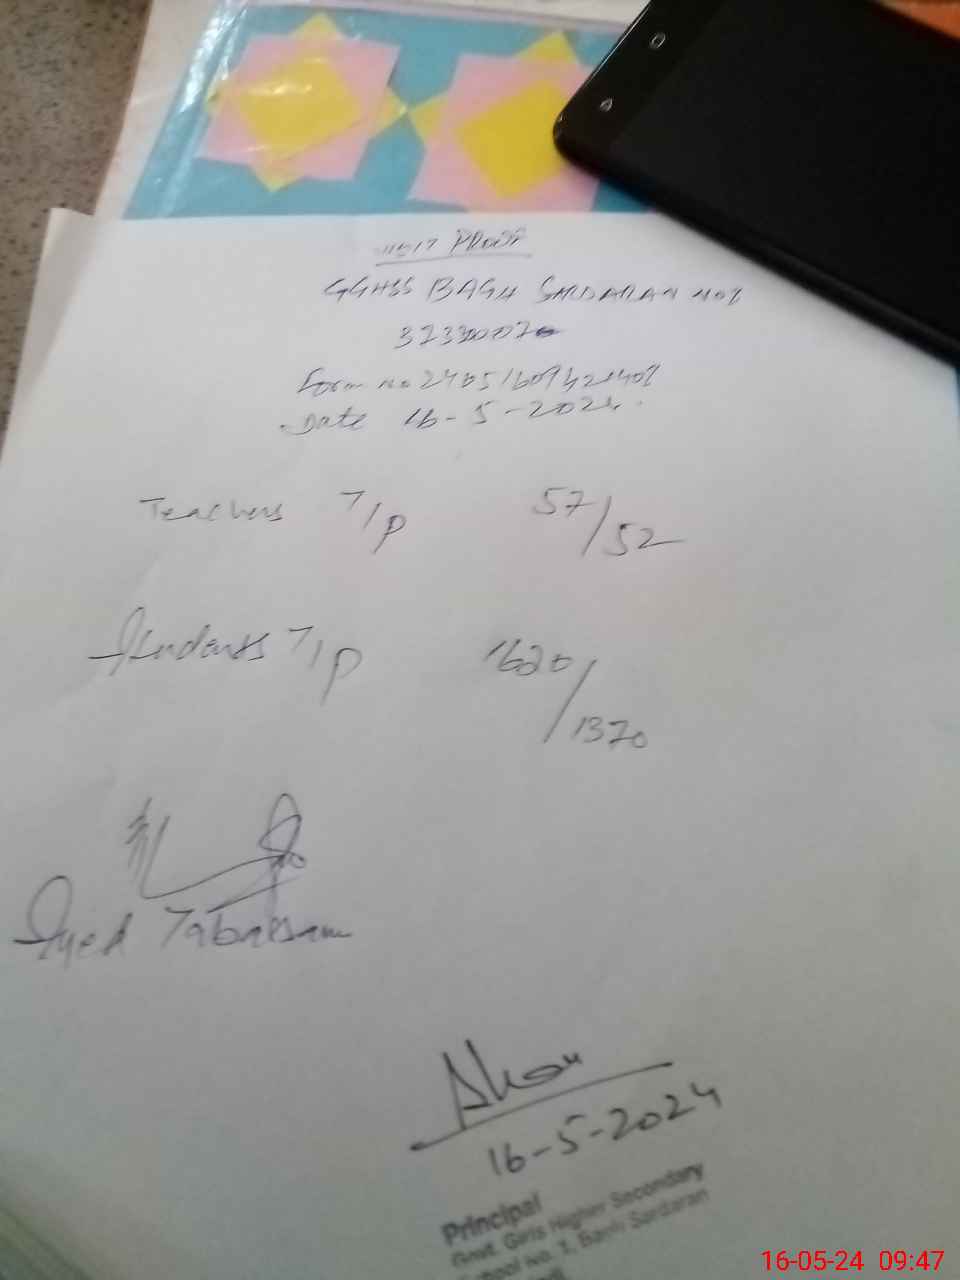 VISIT PROOF
GGHSS BAGH SARDARAN NO 1
Form no
Date 16-5-2024.
Teachers T/P 57/52
Students T/P 1620/1370
Syed Tabassam
16-5-2024
Principal
Govt. Girls Higher Secondary
School No. 1, Bagh Sardaran
16-05-24 09:47